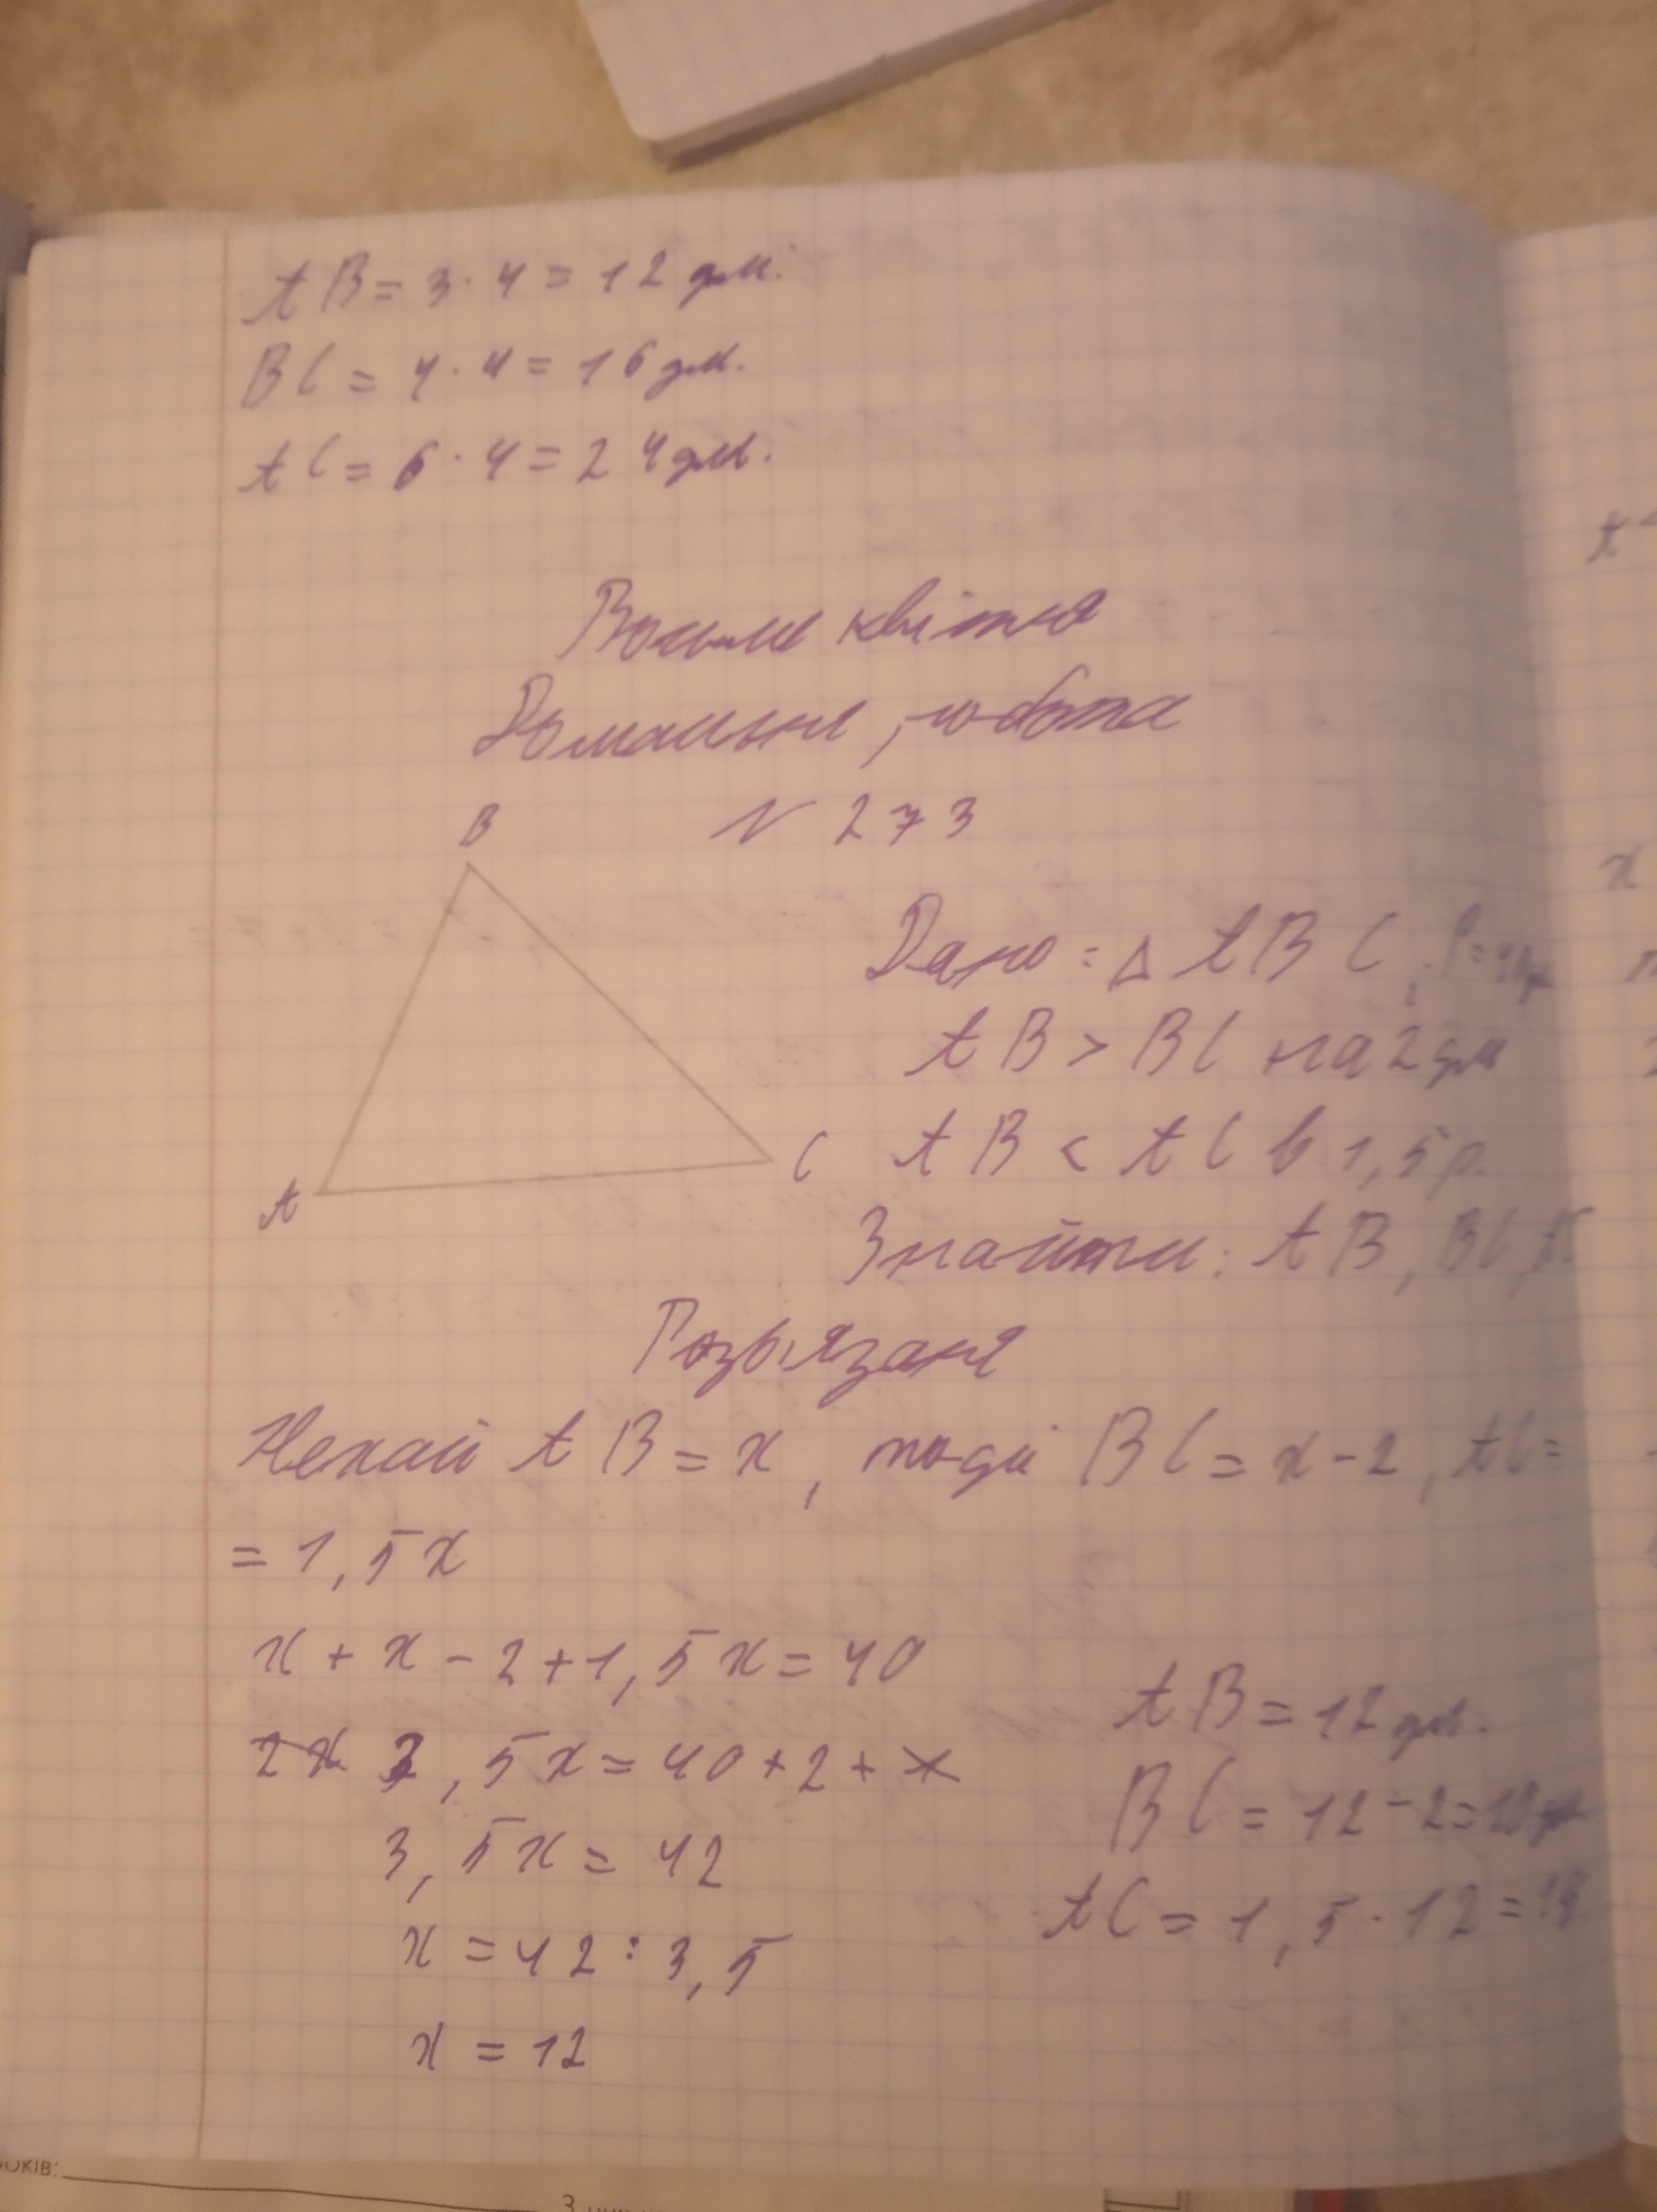 AB = 3 · 4 = 12 дм.
BC = 4 · 4 = 16 дм.
AC = 6 · 4 = 24 дм.
Восьме квітня
Домашня робота
N 273
B
A
C
Дано: Δ ABC, P = 40 дм
AB > BC на 2 дм
AB < AC в 1,5 р.
Знайти: AB, BC, AC
Розвʼязаня
Нехай AB = x, тоді BC = x - 2, AC =
= 1,5x
x + x - 2 + 1,5x = 40
3,5x = 40 + 2
3,5x = 42
x = 42 : 3,5
x = 12
AB = 12 дм.
BC = 12 - 2 = 10 дм
AC = 1,5 · 12 = 18
x
оків: